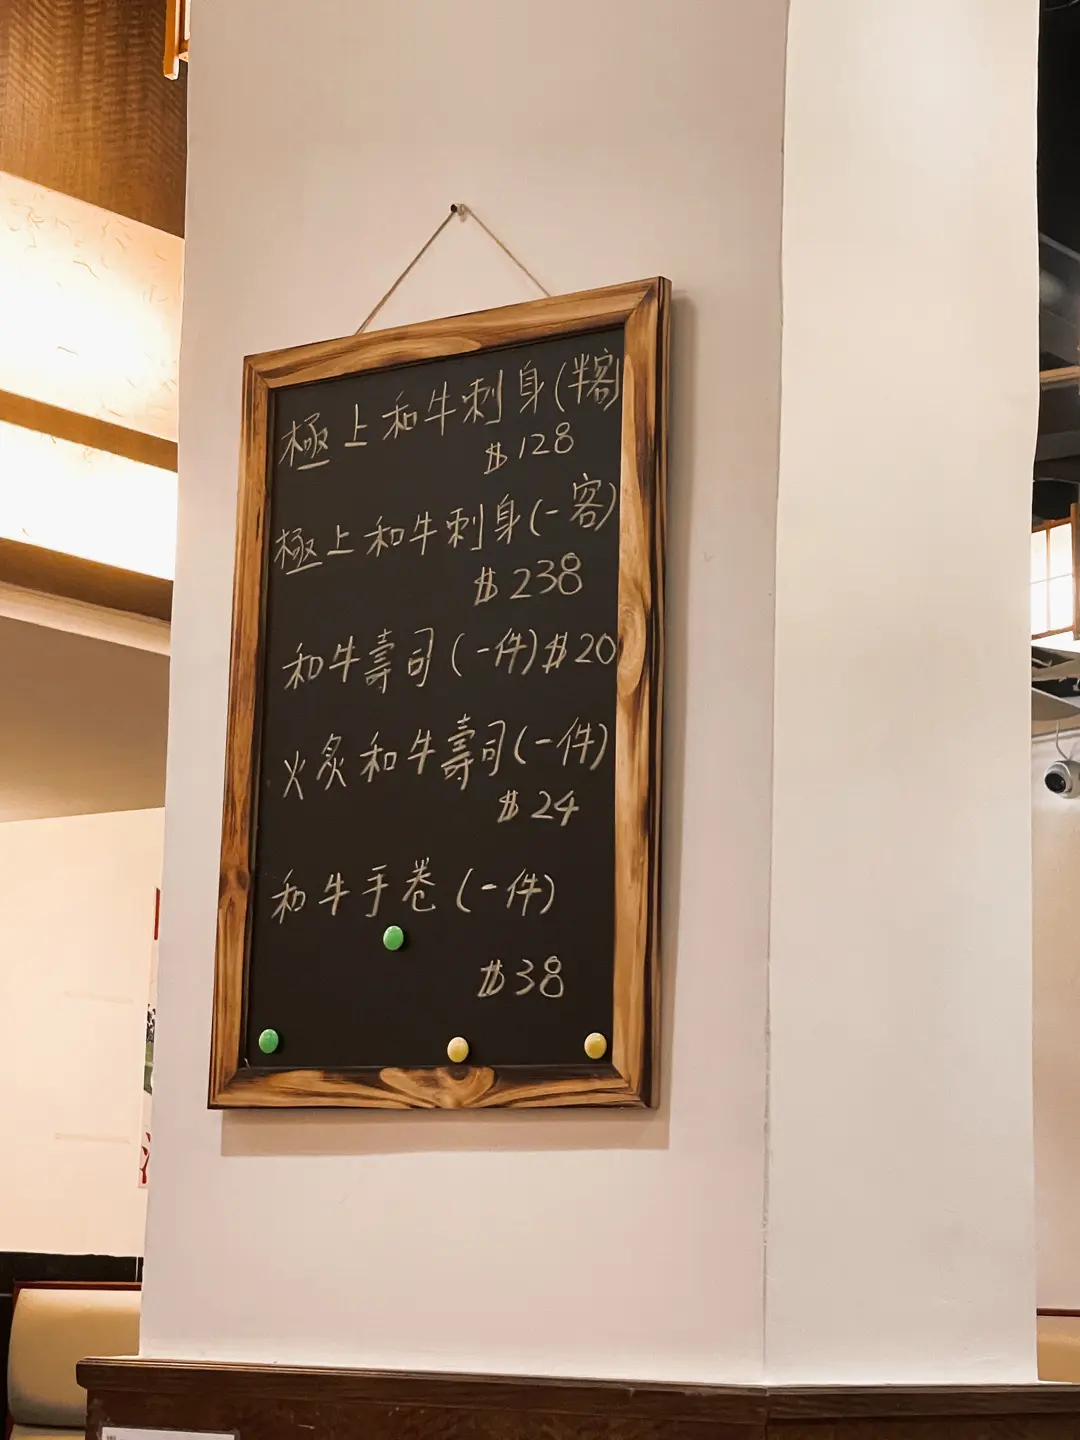 極上和牛刺身(半客)
$128
極上和牛刺身(一客)
$238
和牛壽司(一件)$20
火炙和牛壽司(一件)
$24
和牛手卷(一件)
$38